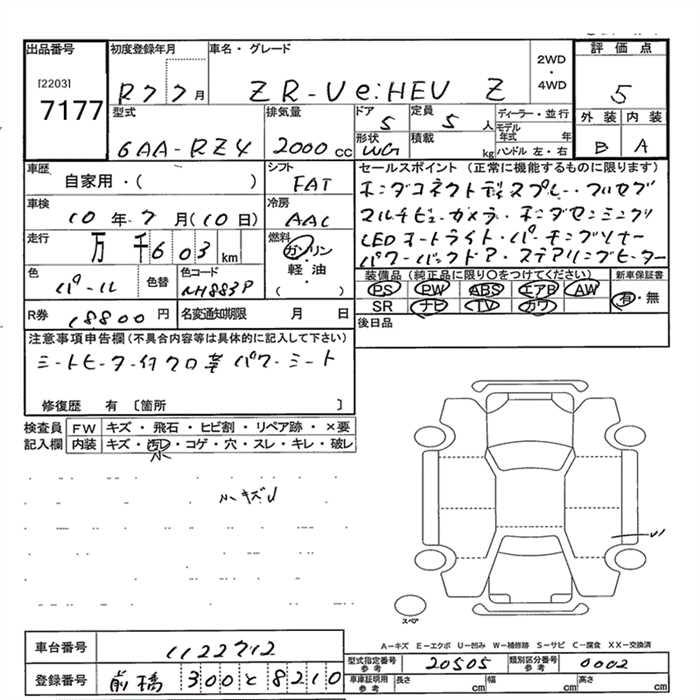 出品番号 初度登録年月 車名・グレード 評価点
[2203] 2WD・4WD
7177 R7 7月 ZR-V e:HEV Z 5
型式 排気量 ドア 定員 ディーラー・並行 外装 内装
5 5人 モデル年式 年
6AA-RZ4 2000cc 形状 WG 積載 kg ハンドル 左・右 B A
車歴 シフト セールスポイント(正常に機能するものに限ります)
自家用・( ) FAT ホンダコネクトディスプレー・フルセグ
車検 冷房 マルチビューカメラ・ホンダセンシング
10年7月(10日) AAC LEDオートライト・パーキングソナー
走行 燃料 パワーバックドア・ステアリングヒーター
万千603km ガソリン・軽油・( )
色 色替 色コード 装備品(純正品に限り○をつけてください) 新車保証書
パール NH883P PS PW ABS エアB AW 有・無
SR ナビ TV カワ
R券 18800円 名変通知期限 月 日 後日品
注意事項申告欄(不具合内容等は具体的に記入して下さい)
シートヒーター付クロ革パワーシート
修復歴 有 〔箇所 〕
検査員 FW キズ・飛石・ヒビ割・リペア跡・×要
記入欄 内装 キズ・汚レ・コゲ・穴・スレ・キレ・破レ
小
小キズU
U1
スペア
A-キズ E-エクボ U-凹み W-補修跡 S-サビ C-腐食 XX-交換済
車台番号 1122712
型式指定番号 参考 20505 類別区分番号 参考 0002
登録番号 前橋 300 と 8210
車庫証明用 参考 長さ cm 幅 cm 高さ cm